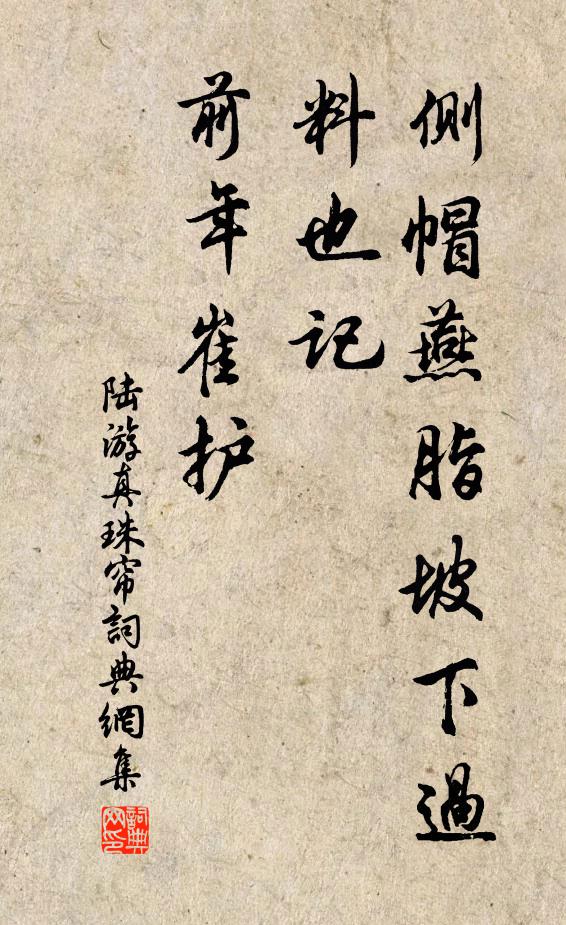 側帽燕脂坡下過
料也記
前年崔护
陆游真珠帘詞典網集
詞典网印